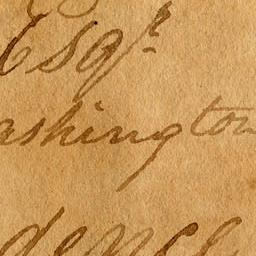 Esqr
ashington
dence